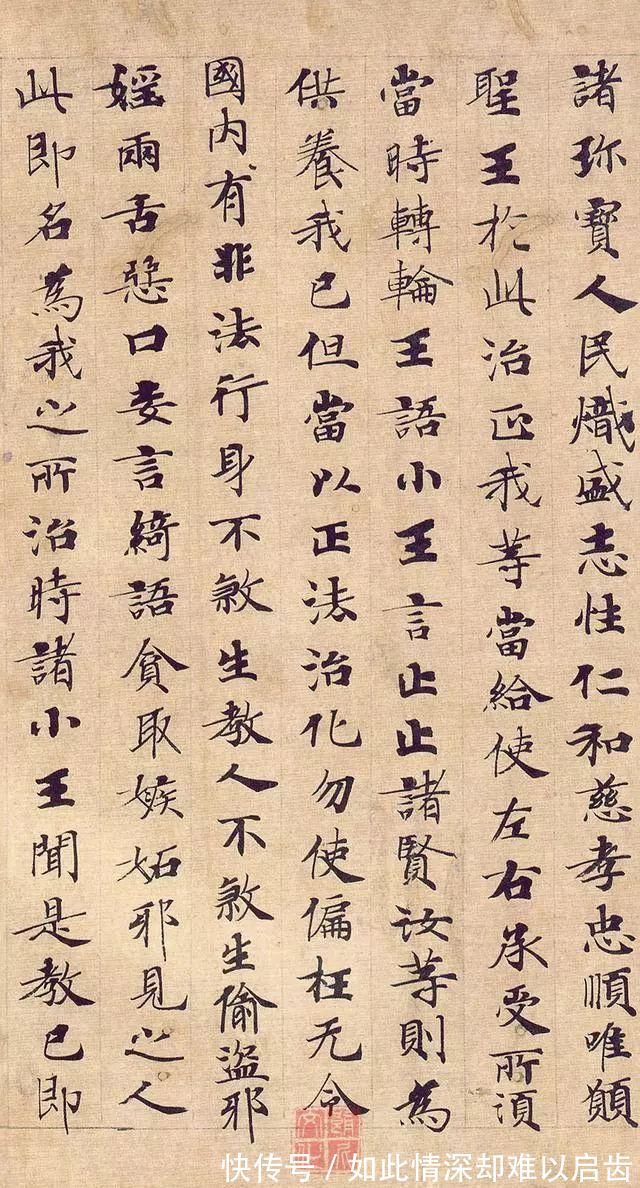 諸珎寶人民熾盛志性仁和慈孝忠順唯願
聖王於此治正我等當給使左右承受所須
當時轉輪王語小王言止止諸賢汝等則為
供養我已但當以正法治化勿使偏枉无令
國內有非法行身不煞生教人不煞生偷盜耶
婬兩舌惡口妄言綺語貪取嫉妬邪見之人
此即名為我之所治時諸小王聞是教已即
快传号 / 如此情深却难以启齿